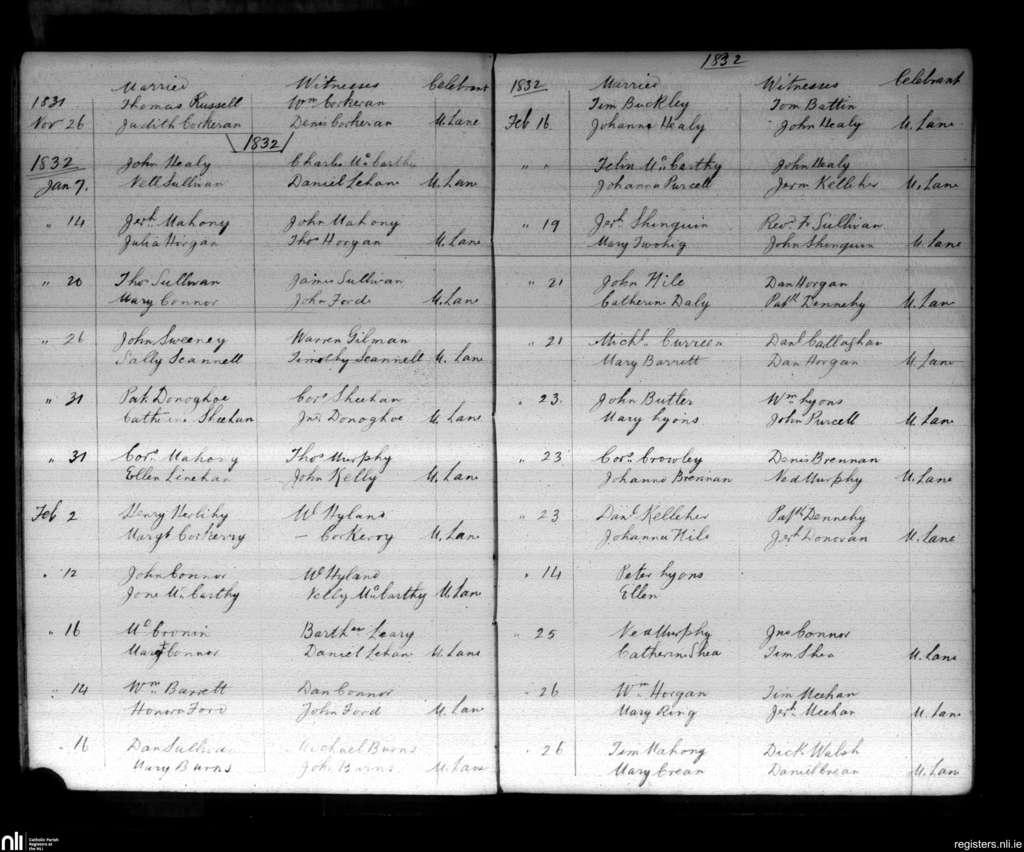 Married Witnesses Celebrant
1831 Thomas Russell Wm Corkeran
Nov 26 Judith Corkeran Denis Corkeran M. Lane
1832
1832 John Healy Charles McCarthy
Jan 7. Nell Sullivan Daniel Lehan M. Lane
" 14 Jerh Mahony John Mahony
Julia Horgan Thos Horgan M. Lane
" 20 Thos Sullivan James Sullivan
Mary Connor John Ford M. Lane
" 26 John Sweeney Warren Gilman
Sally Scannell Timothy Scannell M. Lane
" 31 Pat Donoghoe Cors Sheehan
Catherine Sheehan Jno Donoghoe M. Lane
" 31 Cors Mahony Thos Murphy
Ellen Linehan John Kelly M. Lane
Feb 2 Henry Herlihy Ml Hyland
Margt Corkerry - Corkerry M. Lane
" 12 John Connor Ml Hyland
Jane McCarthy Nelly McCarthy M. Lane
" 16 Ml Cronin Barthw Leary
Margt Connor Daniel Lehan M. Lane
" 14 Wm Barrett Dan Connor
Honora Ford John Ford M. Lane
" 16 Dan Sullivan Michael Burns
Mary Burns John Burns M. Lane
1832
1832 Married Witnesses Celebrant
Tim Buckley Tom Battin
Feb 16 Johanna Healy John Healy M. Lane
" " Felix McCarthy John Healy
Johanna Purcell Jerm Kelleher M. Lane
" 19 Jerh Shinquin Revd F. Sullivan
Mary Twohig John Shinquin M. Lane
" 21 John Hile Dan Horgan
Catherine Daly Patk Dennehy M. Lane
" 21 Michl Curreen Danl Callaghan
Mary Barrett Dan Horgan M. Lane
" 23. John Butler Wm Lyons
Mary Lyons John Purcell M. Lane
" 23 Cors Crowley Denis Brennan
Johanna Brennan Ned Murphy M. Lane
" 23 Danl Kelleher Patk Dennehy
Johanna Hile Jerh Donovan M. Lane
" 14 Peter Lyons
Ellen
" 25 Ned Murphy Jno Connor
Catherine Shea Tim Shea M. Lane
" 26 Wm Horgan Tim Meehan
Mary Ring Jerh Meehan M. Lane
" 26 Tim Mahony Dick Walsh
Mary Crean Daniel Crean M. Lane
nli Catholic Parish Registers at the NLI
registers.nli.ie